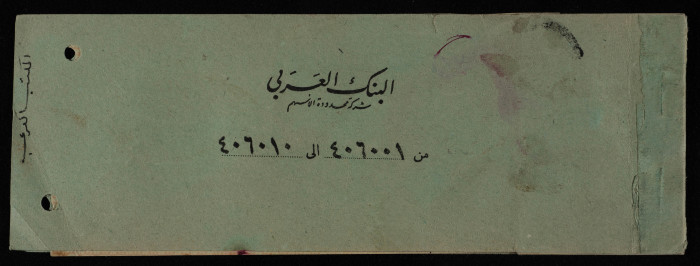 البنك العربي
شركة محدودة الاسهم
من ٤٠٦٠٠١ الى ٤٠٦٠١٠
المكتب العربي